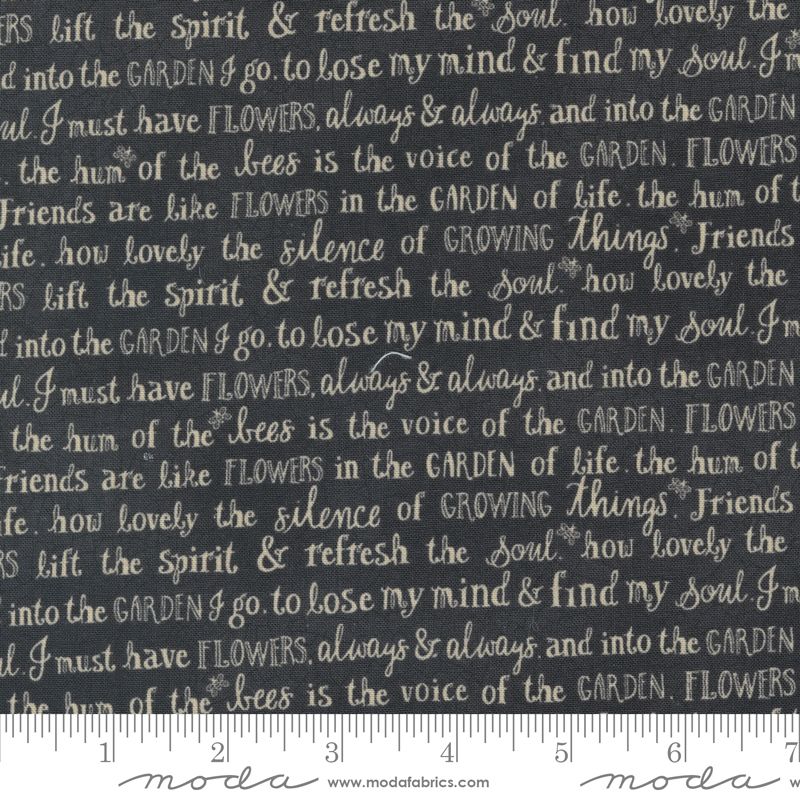 ERS lift the spirit & refresh the soul. how lovely the
d into the GARDEN I go. to lose my mind & find my soul. I m
ul. I must have FLOWERS, always & always. and into the GARDEN
. the hum of the bees is the voice of the GARDEN. FLOWERS
Friends are like FLOWERS in the GARDEN of life. the hum of t
ife. how lovely the silence of GROWING things. Friends
RS lift the spirit & refresh the soul. how lovely the
d into the GARDEN I go. to lose my mind & find my soul. I m
ul. I must have FLOWERS, always & always. and into the GARDEN
the hum of the bees is the voice of the GARDEN. FLOWERS
Friends are like FLOWERS in the GARDEN of life. the hum of t
ife. how lovely the silence of GROWING things. Friends
ERS lift the spirit & refresh the soul. how lovely the
d into the GARDEN I go. to lose my mind & find my soul. I m
ul. I must have FLOWERS, always & always. and into the GARDEN
the hum of the bees is the voice of the GARDEN. FLOWERS
1 2 3 4 5 6 7
moda www.modafabrics.com moda w